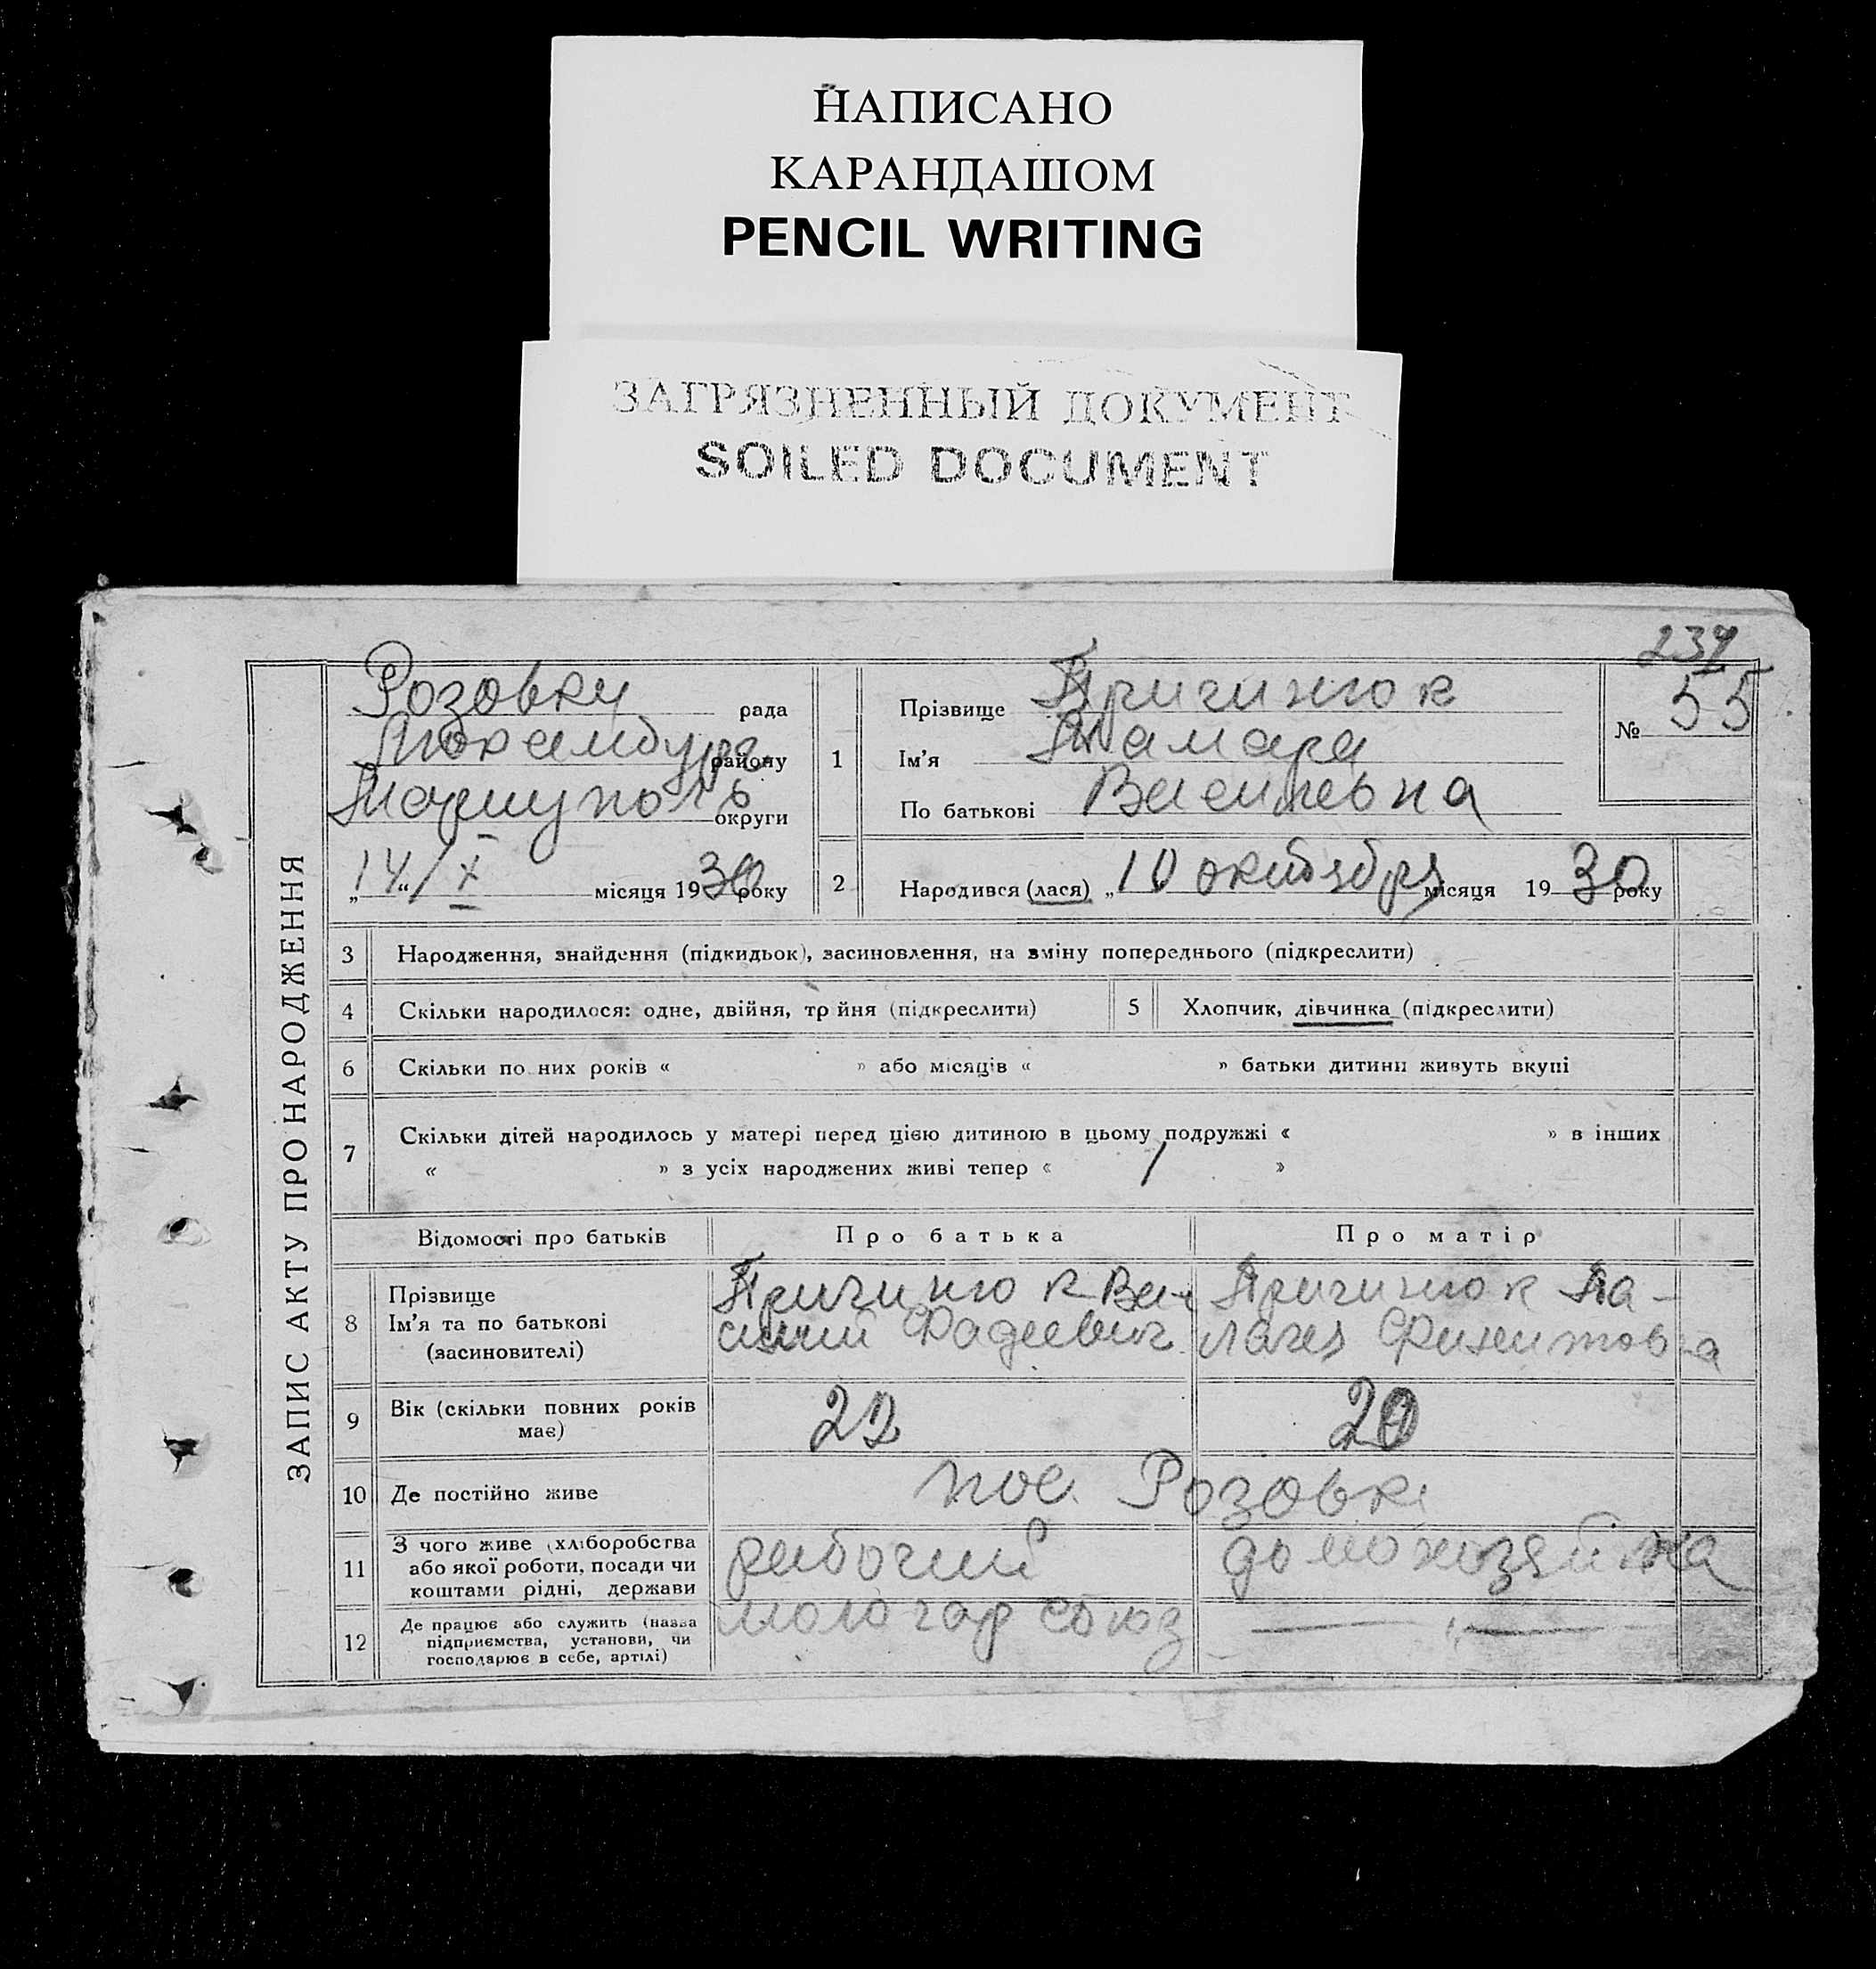 НАПИСАНО
КАРАНДАШОМ
PENCIL WRITING
ЗАГРЯЗНЕННЫЙ ДОКУМЕНТ
SOILED DOCUMENT
237
ЗАПИС АКТУ ПРО НАРОДЖЕННЯ
Розовку рада
району
округи
„14“/X місяця 1930 року
1
Прізвище Причинюк
Ім'я Тамара
По батькові Васильевна
№ 55
2
Народився (лася) „10 октября місяця 1930 року
3 Народження, знайдення (підкидьок), засиновлення, на зміну попереднього (підкреслити)
4 Скільки народилося: одне, двійня, тройня (підкреслити) 5 Хлопчик, дівчинка (підкреслити)
6 Скільки по них років « » або місяців « » батьки дитини живуть вкупі
7 Скільки дітей народилось у матері перед цією дитиною в цьому подружжі « » в інших
« » з усіх народжених живі тепер « / »
Відомості про батьків Про батька Про матір
8 Прізвище
Ім'я та по батькові
(засиновителі)
Причинюк Ва-
силий Фадеевич
Причинюк Па-
лагея
9 Вік (скільки повних років
має)
22 20
10 Де постійно живе пос. Розовка
11 З чого живе (хліборобства
або якої роботи, посади чи
коштами рідні, держави
рабочий домохозяйка
12 Де працює або служить (назва
підприємства, установи, чи
господарює в себе, артілі)
союз — „ —